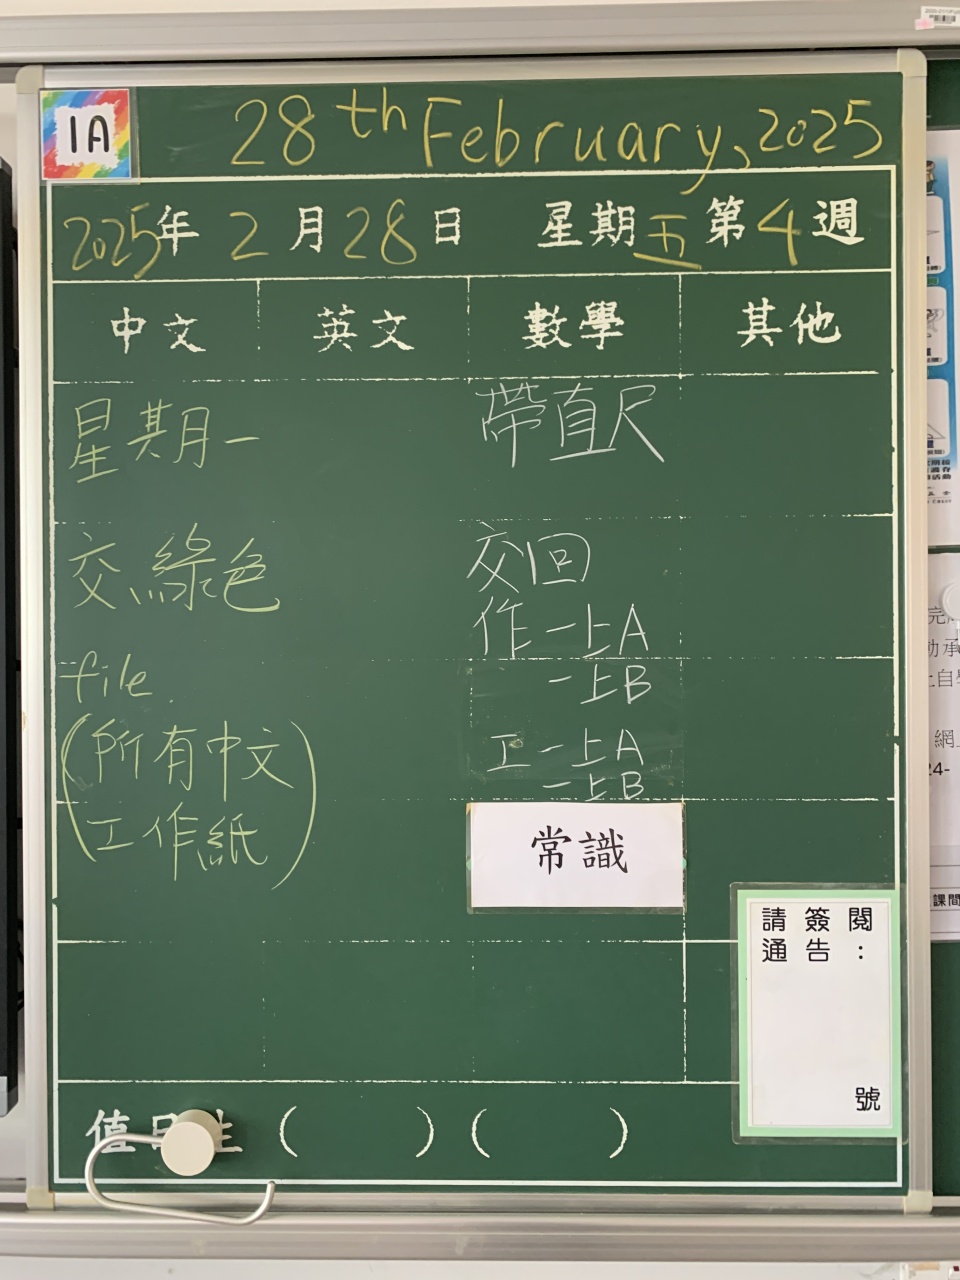 1A
28th February, 2025
2025年 2月28日 星期五 第4週
中文 英文 數學 其他
星期一
交綠色
file
(所有中文
工作紙)
帶直尺
交回
作一上A
一上B
工一上A
一上B
常識
請簽閱
通告：
號
值日生 ( ) ( )
網上
24-
課間